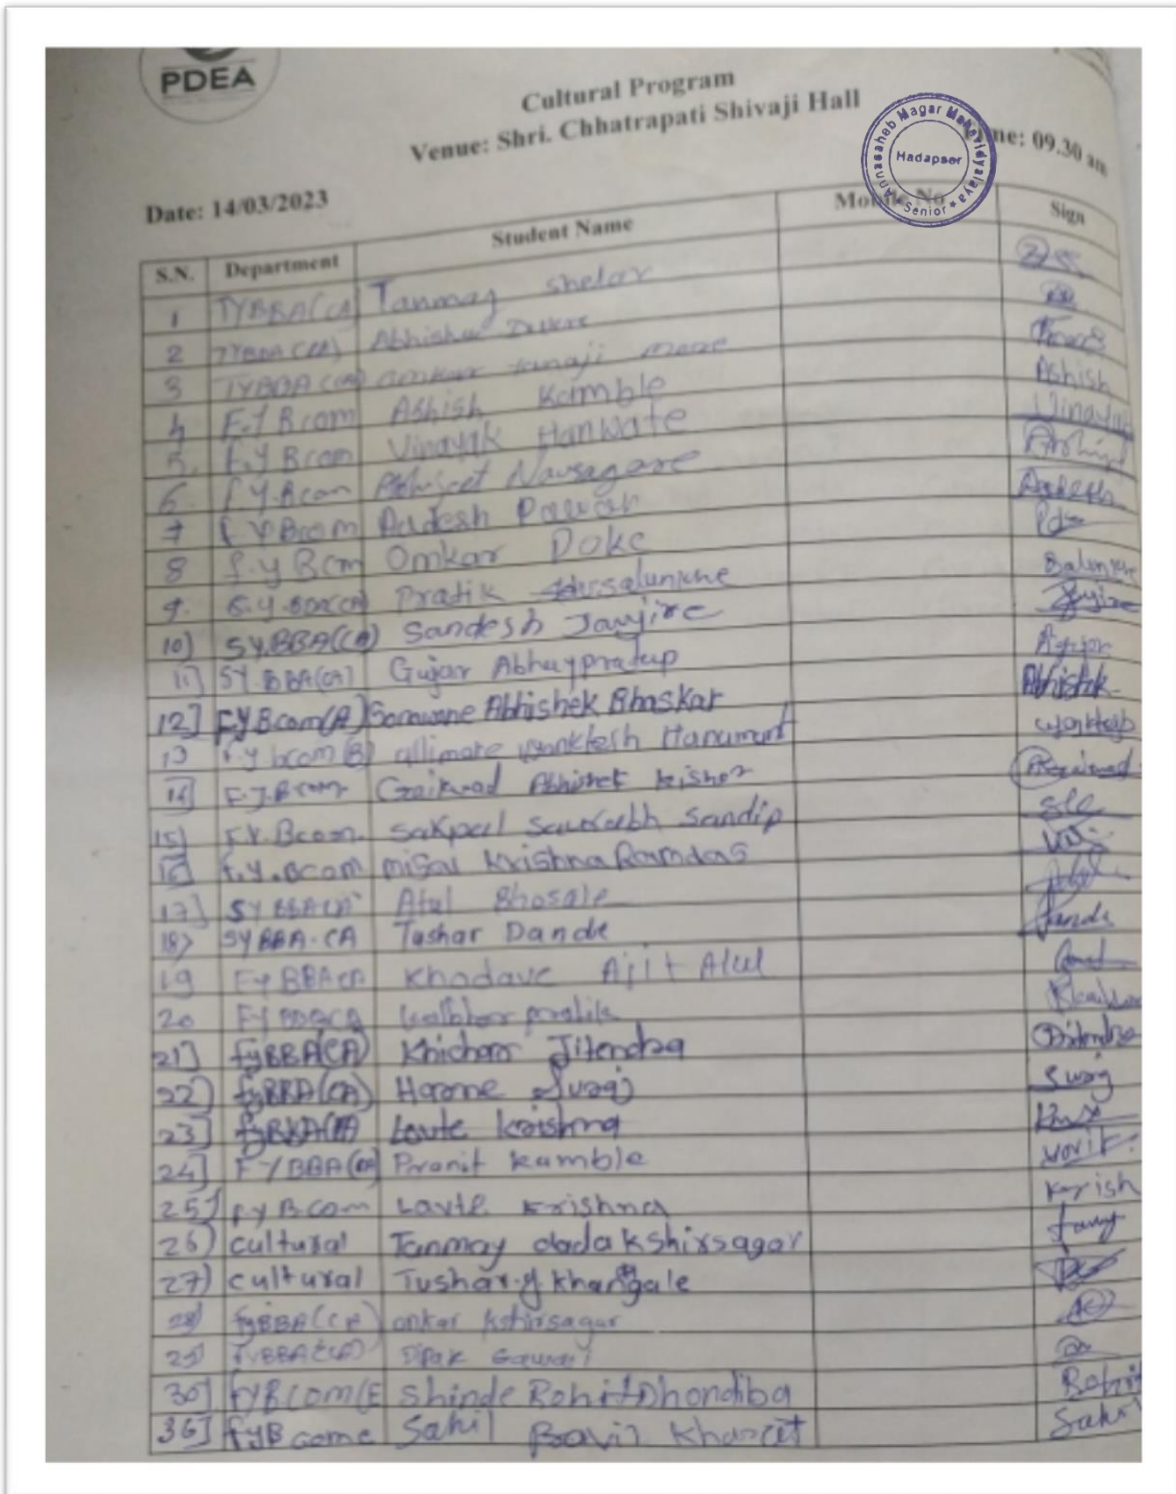 PDEA
Cultural Program
Venue: Shri. Chhatrapati Shivaji Hall
Annasaheb Magar Mahavidyalaya Hadapser Senior
Time: 09.30 am
Date: 14/03/2023
S.N. Department Student Name Mobile No Sign
1 TYBBA(CA Tanmay shelar
2 TYBBA(CA)
3 TYBBA(CA) omkar tanaji more
4 F.Y Bcom Ashish Kamble Ashish
5. F.y Bcom Vinayak Hanwate Vinayak
6. f.y.Bcom Abhijeet Navsagare
7 f.yBcom Aadesh Pawar Aadesh
8 f.y Bcm Omkar Doke
9. Pratik salunkhe Salunkhe
10) SY.BBA(CA) Sandesh Janjire
11] SY.BBA(CA) Gujar Abhaypratap
12] F.Y.Bcom(A) Sonawane Abhishek Bhaskar Abhishek
13 f.y bcom(B)
14] F.Y.Bcom Gaikwad Abhishek kishor
15] F.Y.Bcom. Sakpal Saurabh Sandip
16] f.y.Bcom misal Krishna Ramdas
17] SYBBACA Atul Bhosale
18> SYBBA-CA Tushar Dande Dande
19 FyBBACA Khodave Ajit Atul
20 FYBBACA kalbhor pratik
21] fyBBA(CA) Khichar Jitendra Jitendra
22) fyBBA(CA) Harone Suraj Suraj
23] Lavte krishna
24] FYBBA(CA) Pranit kamble
25] FyB.com Lavte Krishna Krish
26) cultural Tanmay dada kshirsagar
27) cultural Tushar.g.khangale
28) fyBBA(CA) onkar kshirsagar
29) Dipak
30] fyBcom(E Shinde Rohit Dhondiba Rohit
36] fyBcome Sahil Ravi Kharat Sahil